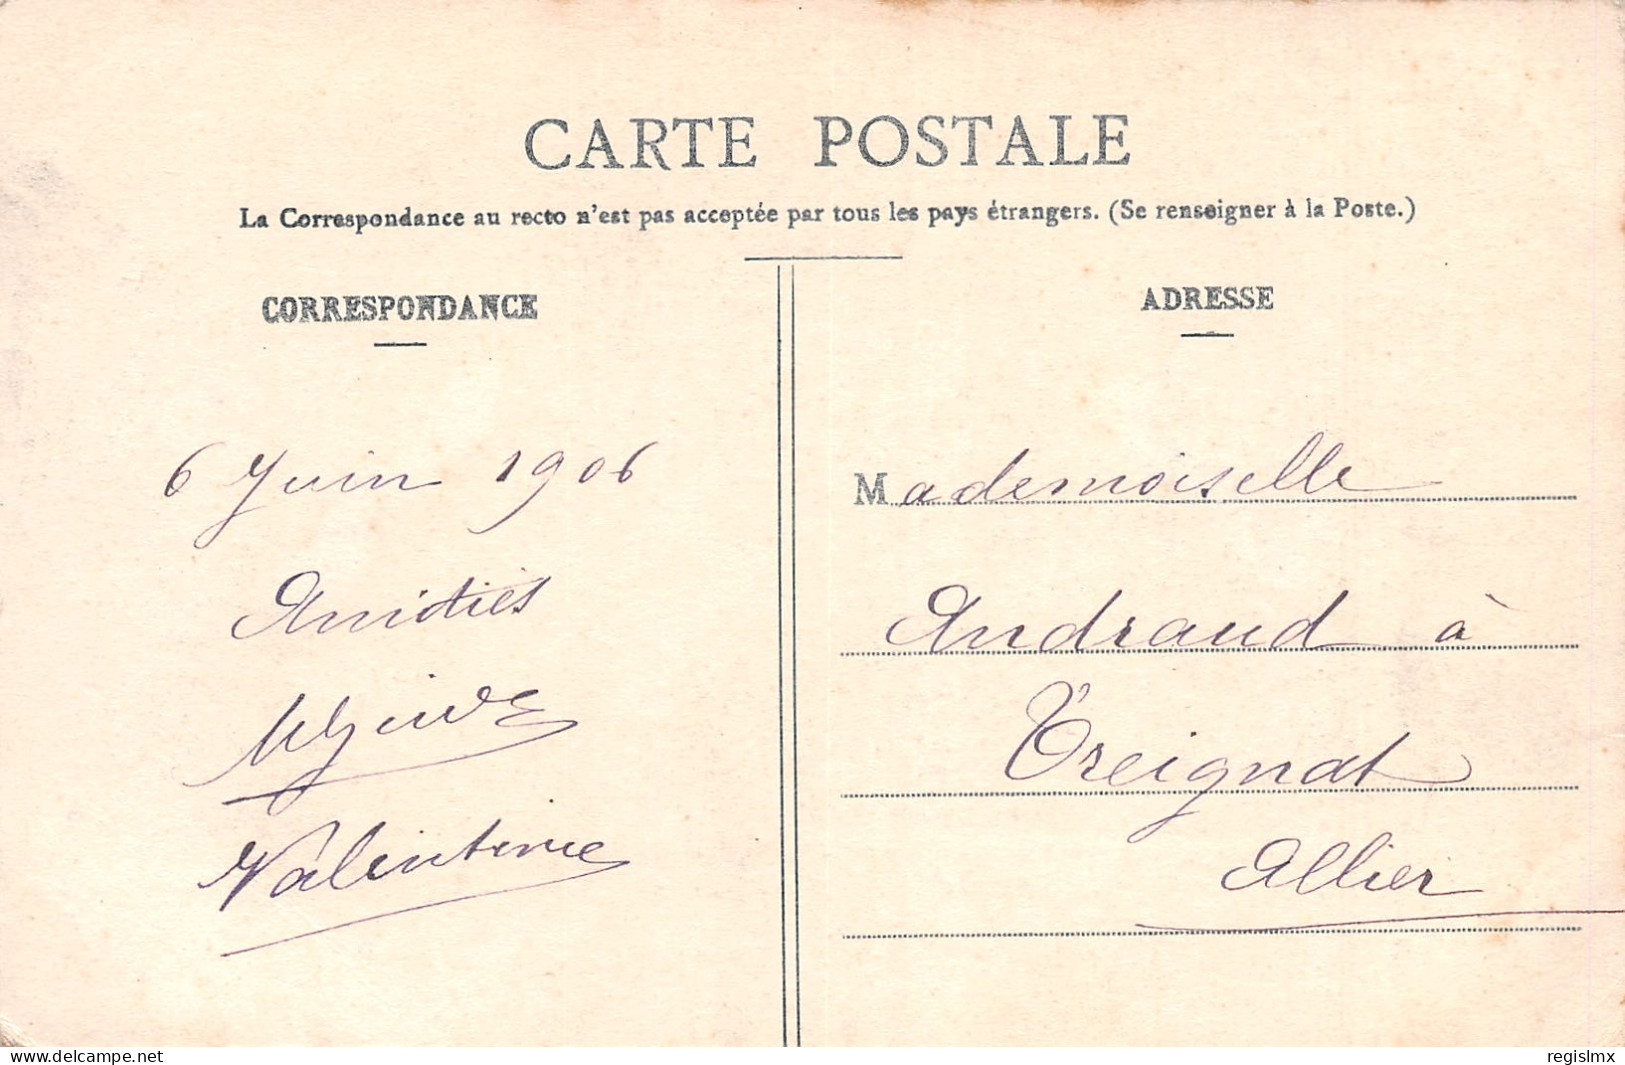 CARTE POSTALE
La Correspondance au recto n'est pas acceptée par tous les pays étrangers. (Se renseigner à la Poste.)
CORRESPONDANCE
6 Juin 1906
Amitiés
Valentine
ADRESSE
Mademoiselle
Andraud à
Treignat
Allier
www.delcampe.net
regislmx